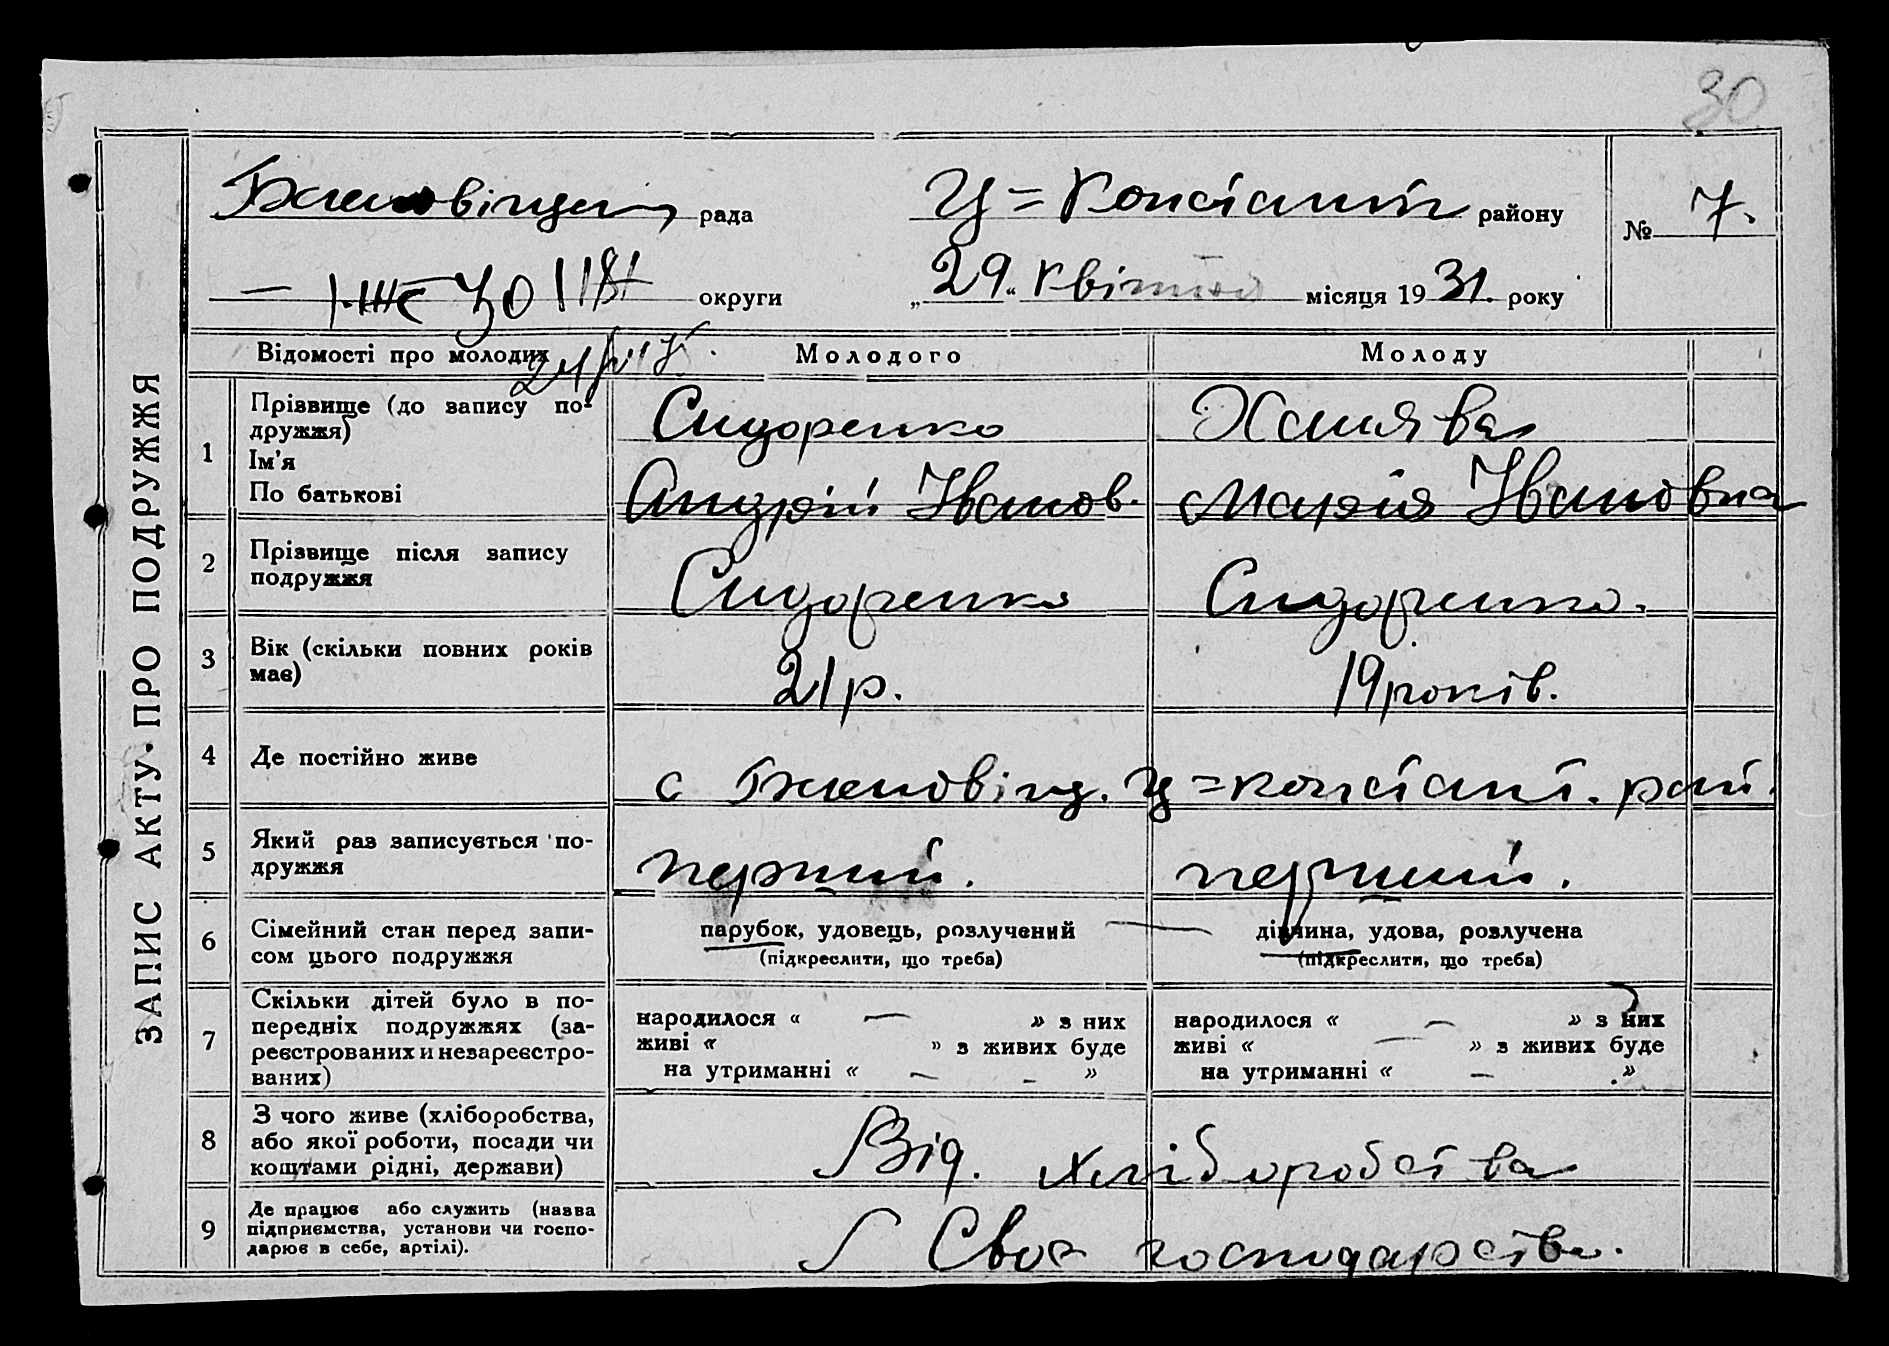 30
рада
Ц = Констант району
№ 7.
округи
„29“ квітня місяця 1931. року
Відомості про молодих
Молодого
Молоду
ЗАПИС АКТУ · ПРО ПОДРУЖЖЯ
1
Прізвище (до запису по-
дружжя)
Ім'я
По батькові
Сидоренко
Андрій Іванов.
Марія Івановна
2
Прізвище після запису
подружжя
Сидоренко
Сидоренко.
3
Вік (скільки повних років
має)
21 р.
19 років.
4
Де постійно живе
с Бженовінц. Ц = констант. рай.
5
Який раз записується по-
дружжя
перший.
перший.
6
Сімейний стан перед запи-
сом цього подружжя
парубок, удовець, розлучений
(підкреслити, що треба)
дівчина, удова, розлучена
(підкреслити, що треба)
7
Скільки дітей було в по-
передніх подружжях (за-
реєстрованих и незареєстро-
ваних)
народилося « — » з них
живі « » з живих буде
на утриманні « — - »
народилося « — » з них
живі « — » з живих буде
на утриманні « — »
8
З чого живе (хліборобства,
або якої роботи, посади чи
коштами рідні, держави)
Від. хліборобства
9
Де працює або служить (назва
підприємства, установи чи госпо-
дарює в себе, артілі).
Своє господарство.